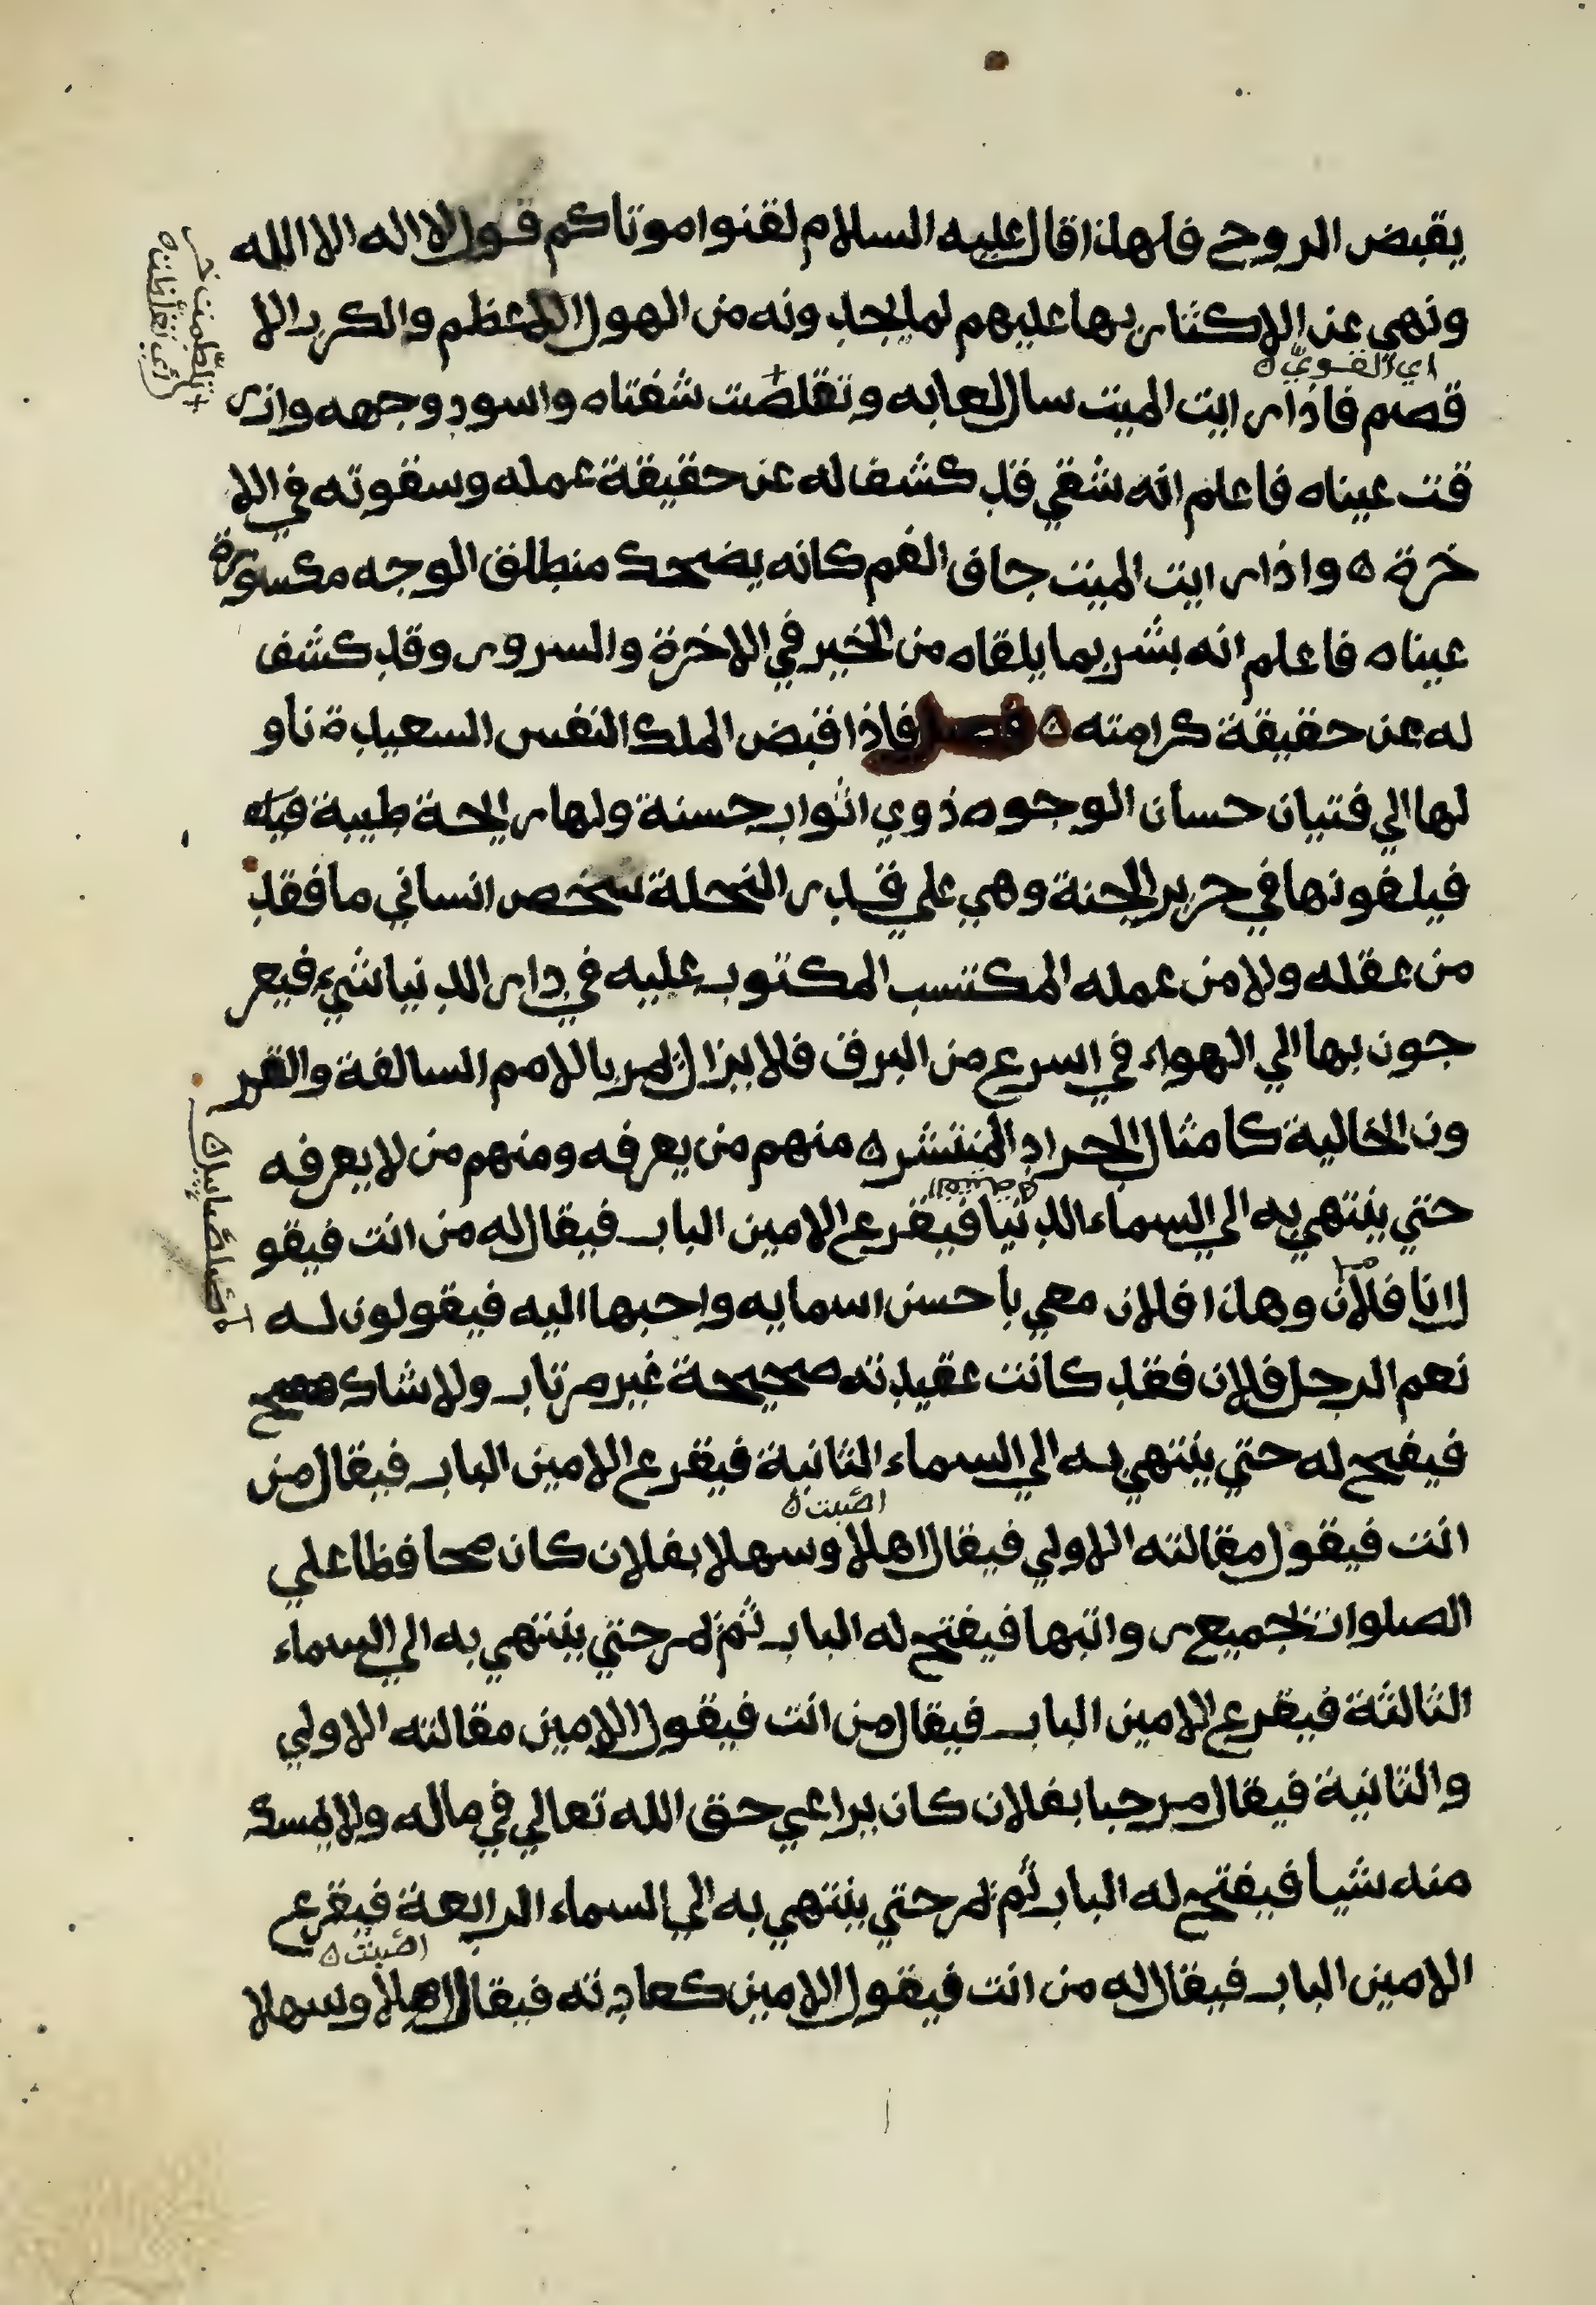 يقبض الروح فلهذا قال عليه السلام لقنوا موتاكم قول لا اله الا الله
ونهي عن الاكثار بها عليهم لما يجدونه من الهول الاعظم والكرب الا
اي القوي
قصم فاذا رايت الميت سال لعابه وتقلصت شفتاه واسود وجهه وازر
قت عيناه فاعلم انه شقي قد كشف له عن حقيقة عمله وسقوته في الا
خرة ه واذا رايت الميت جاف الفم كانه يضحك منطلق الوجه مكسورة
عيناه فاعلم انه بشر بما يلقاه من الخير في الاخرة والسرور وقد كشف
له عن حقيقة كرامته ه فصل فاذا قبض الملك النفس السعيدة ناو
لها الي فتيان حسان الوجوه ذوي اثواب حسنة ولها رايحة طيبة فيه
فيلفونها في حرير الجنة وهي علي قدر النحلة شخص انساني ما فقد
من عقله ولا من عمله المكتسب المكتوب عليه في دار الدنيا شيء فيعر
جون بها الي الهواء في اسرع من البرق فلا يزال يمر بالامم السالفة والقر
ون الخالية كامثال الجراد المنتشر ه منهم من يعرفه ومنهم من لا يعرفه
حتي ينتهي به الي السماء الدنيا فيقرع الامين الباب فيقال له من انت فيقو
ل انا فلان وهاذا فلان معي باحسن اسمايه واحبها اليه فيقولون له
نعم الرجل فلان فقد كانت عقيدته صحيحة غير مرتاب ولا شاك
فيفتح له حتي ينتهي به الي السماء الثانية فيقرع الامين الباب فيقال من
اصبت ه
انت فيقول مقالته الاولي فيقال اهلا وسهلا بفلان كان محافظا علي
الصلوات بجميع رواتبها فيفتح له الباب ثم يمر حتي ينتهي به الي السماء
الثالثة فيقرع الامين الباب فيقال من انت فيقول الامين مقالته الاولي
والثانية فيقال مرحبا بفلان كان يراعي حق الله تعالي في ماله ولا يمسك
منه شيا فيفتح له الباب ثم يمر حتي ينتهي به الي السماء الرابعة فيقرع
اصبت ه
الامين الباب فيقال له من انت فيقول الامين كعادته فيقال اهلا وسهلا